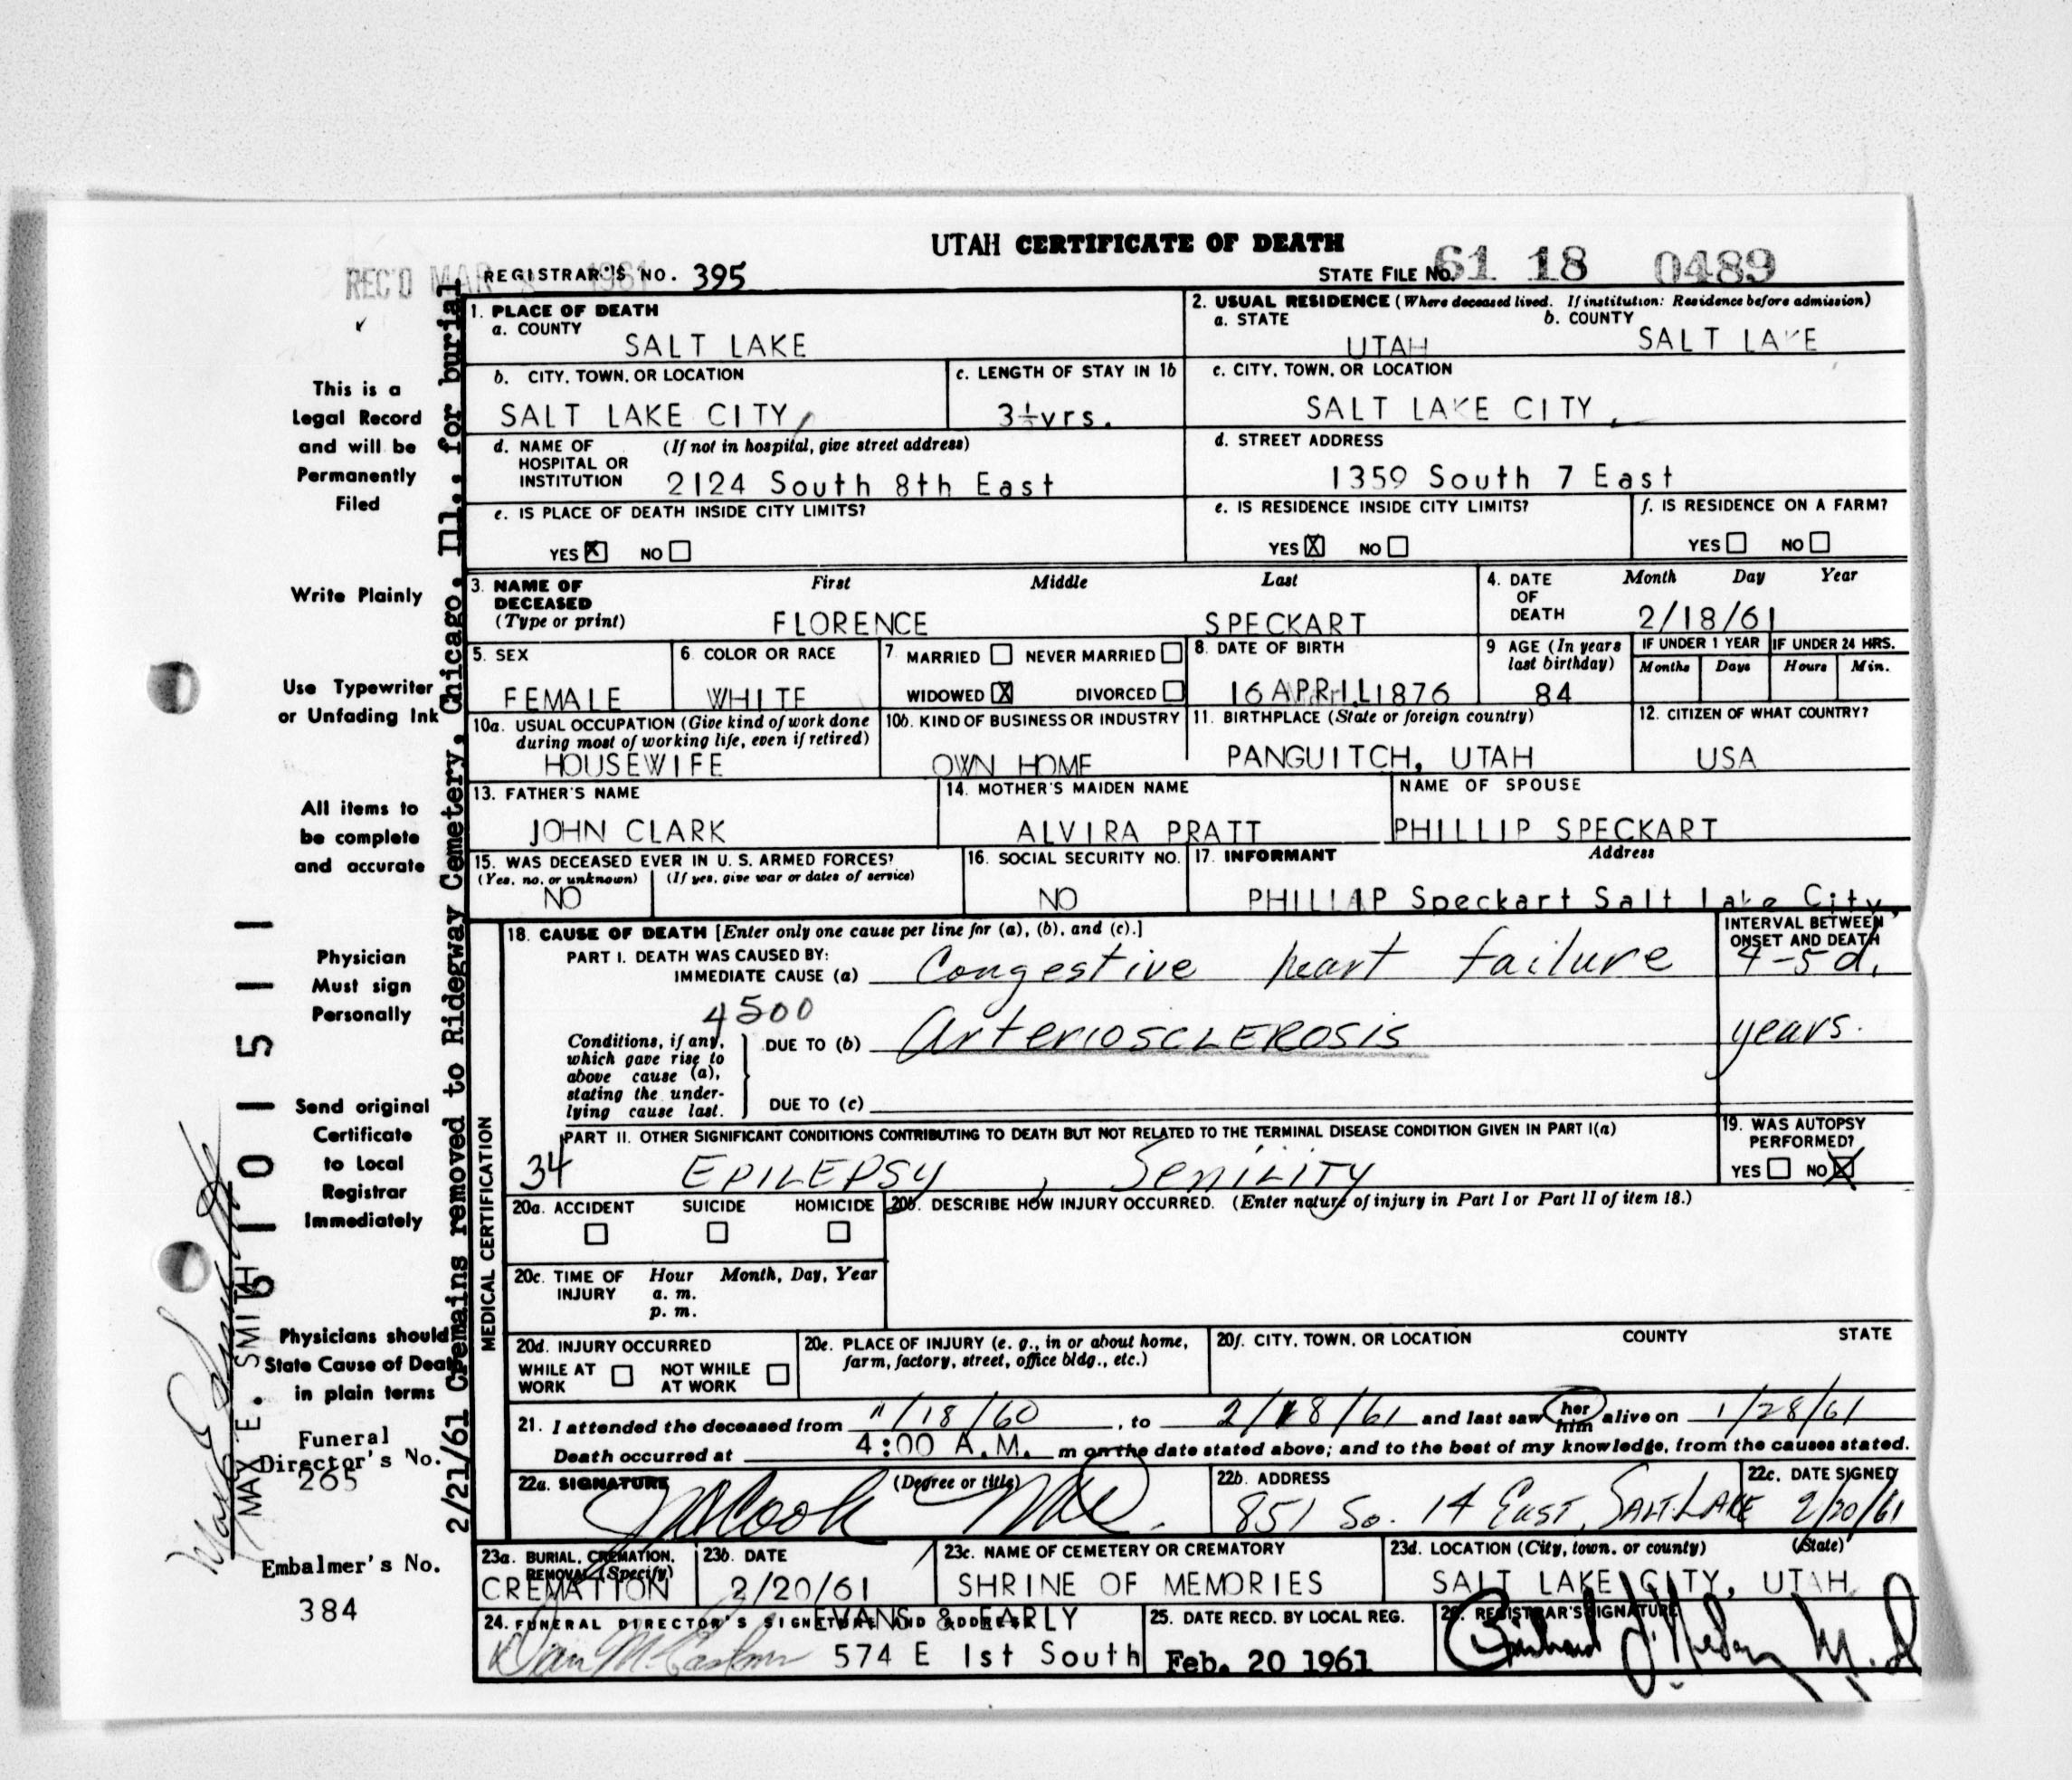 UTAH CERTIFICATE OF DEATH
REC'D MAR 1961 REGISTRAR'S NO. 395 STATE FILE No. 61 18 0489
1. PLACE OF DEATH
a. COUNTY
SALT LAKE
2. USUAL RESIDENCE (Where deceased lived. If institution: Residence before admission)
a. STATE b. COUNTY
UTAH SALT LAKE
b. CITY, TOWN, OR LOCATION
SALT LAKE CITY,
c. LENGTH OF STAY IN 1b
3½yrs.
c. CITY, TOWN, OR LOCATION
SALT LAKE CITY,
d. NAME OF (If not in hospital, give street address)
HOSPITAL OR
INSTITUTION 2124 South 8th East
d. STREET ADDRESS
1359 South 7 East
e. IS PLACE OF DEATH INSIDE CITY LIMITS?
YES X NO
e. IS RESIDENCE INSIDE CITY LIMITS?
YES X NO
f. IS RESIDENCE ON A FARM?
YES NO
3. NAME OF First Middle Last
DECEASED
(Type or print) FLORENCE SPECKART
4. DATE Month Day Year
OF
DEATH 2/18/61
5. SEX
FEMALE
6. COLOR OR RACE
WHITE
7 MARRIED NEVER MARRIED
WIDOWED X DIVORCED
8. DATE OF BIRTH
16 APRIL 1876
9 AGE (In years
last birthday)
84
IF UNDER 1 YEAR IF UNDER 24 HRS.
Months Days Hours Min.
10a. USUAL OCCUPATION (Give kind of work done
during most of working life, even if retired)
HOUSEWIFE
10b. KIND OF BUSINESS OR INDUSTRY
OWN HOME
11. BIRTHPLACE (State or foreign country)
PANGUITCH, UTAH
12. CITIZEN OF WHAT COUNTRY?
USA
13. FATHER'S NAME
JOHN CLARK
14. MOTHER'S MAIDEN NAME
ALVIRA PRATT
NAME OF SPOUSE
PHILLIP SPECKART
15. WAS DECEASED EVER IN U. S. ARMED FORCES?
(Yes, no, or unknown) (If yes, give war or dates of service)
NO
16. SOCIAL SECURITY NO.
NO
17. INFORMANT Address
PHILLIP Speckart Salt Lake City,
MEDICAL CERTIFICATION
18. CAUSE OF DEATH [Enter only one cause per line for (a), (b), and (c).]
PART I. DEATH WAS CAUSED BY:
IMMEDIATE CAUSE (a) Congestive heart failure
INTERVAL BETWEEN
ONSET AND DEATH
4-5 d.
4500
Conditions, if any,
which gave rise to
above cause (a),
stating the under-
lying cause last.
DUE TO (b) ArterioSCLEROSIS years.
DUE TO (c)
PART II. OTHER SIGNIFICANT CONDITIONS CONTRIBUTING TO DEATH BUT NOT RELATED TO THE TERMINAL DISEASE CONDITION GIVEN IN PART I(a)
34 EPILEPSY, SENILITY
19. WAS AUTOPSY
PERFORMED?
YES NO X
20a. ACCIDENT SUICIDE HOMICIDE
20b. DESCRIBE HOW INJURY OCCURRED. (Enter nature of injury in Part I or Part II of item 18.)
20c. TIME OF Hour Month, Day, Year
INJURY a. m.
p. m.
20d. INJURY OCCURRED
WHILE AT NOT WHILE
WORK AT WORK
20e. PLACE OF INJURY (e. g., in or about home,
farm, factory, street, office bldg., etc.)
20f. CITY, TOWN, OR LOCATION COUNTY STATE
21. I attended the deceased from 11/18/60, to 2/18/61 and last saw her him alive on 1/28/61
Death occurred at 4:00 A.M. m on the date stated above; and to the best of my knowledge, from the causes stated.
22a. SIGNATURE (Degree or title)
Cook MD.
22b. ADDRESS
851 So. 14 East, SALT LAKE
22c. DATE SIGNED
2/20/61
23a. BURIAL, CREMATION,
REMOVAL (Specify)
CREMATION
23b. DATE
2/20/61
23c. NAME OF CEMETERY OR CREMATORY
SHRINE OF MEMORIES
23d. LOCATION (City, town, or county) (State)
SALT LAKE CITY, UTAH
24. FUNERAL DIRECTOR'S SIGNATURE AND ADDRESS
EVANS & EARLY
574 E 1st South
25. DATE RECD. BY LOCAL REG.
Feb. 20 1961
26. REGISTRAR'S SIGNATURE
M.D
This is a
Legal Record
and will be
Permanently
Filed
Write Plainly
Use Typewriter
or Unfading Ink
All items to
be complete
and accurate
Physician
Must sign
Personally
Send original
Certificate
to Local
Registrar
Immediately
Physicians should
State Cause of Death
in plain terms
Funeral
Director's No.
265
Embalmer's No.
384
2/21/61 Cremains removed to Ridegway Cemetery, Chicago, Ill., for burial
MAX E. SMITH